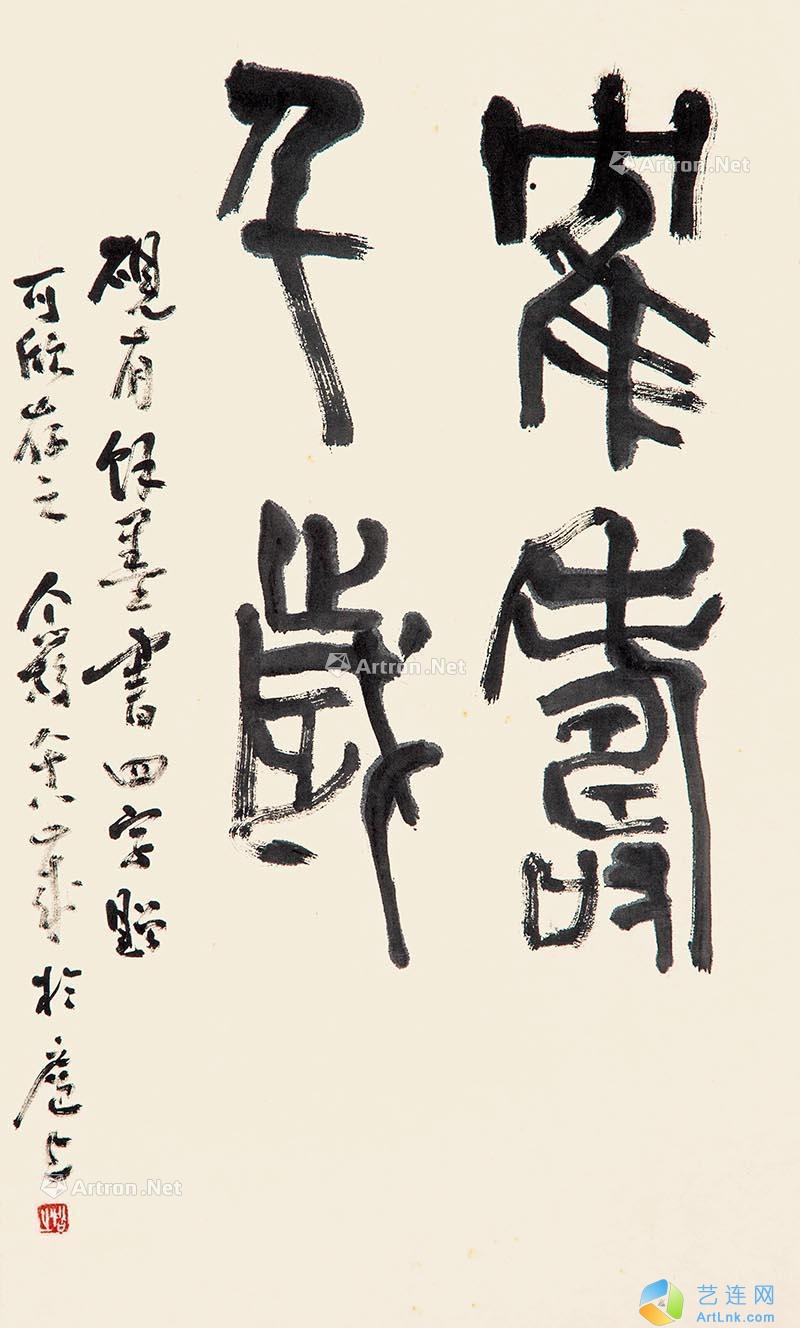 鶴壽
千歲
硯有餘墨書四字贈
可欣存之 个簃 歲於滬上
Artron.Net
Artron.Net
Artron.Net
艺连网
ArtLnk.com